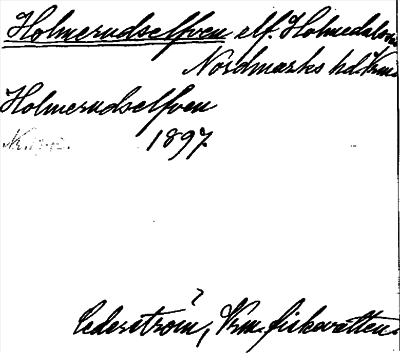 Holmerudselfven elf. Holmedals sn
Nordmarks hd Vrm.
Holmerudselfven
1897
Cederström, Vrm. fiskevatten.